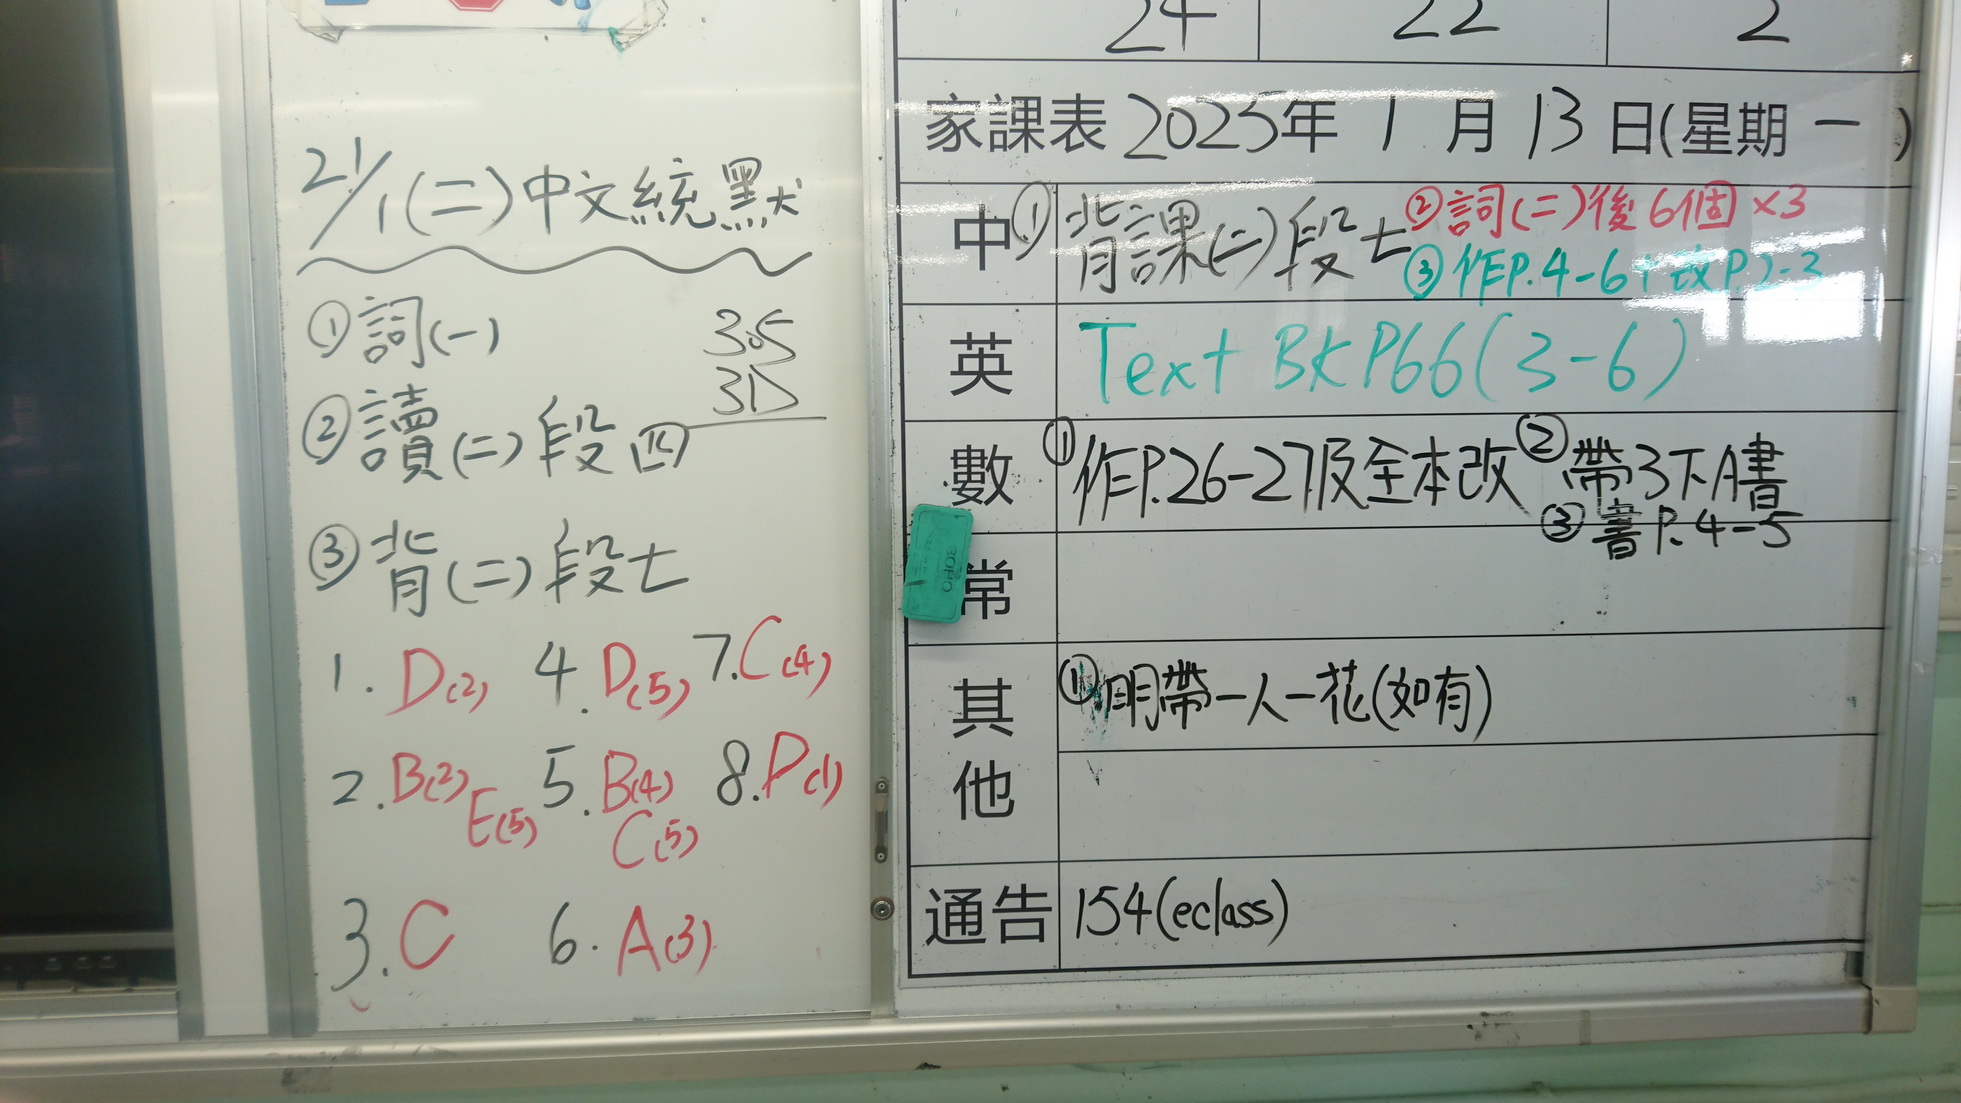 21/1(二)中文統默
①詞(一)
②讀(二)段四
③背(二)段七
1. D(2) 4. D(5) 7. C(4)
2. B(2) E(5) 5. B(4) C(5) 8. D(1)
3. C 6. A(3)
24 22 2
家課表 2025年 1 月 13 日(星期 一 )
中 ①背課(二)段七 ②詞(二)後6個×3
③作P.4-6+改P.2-3
英 Text BK P66(3-6)
數 ①作P.26-27及全本改 ②帶3下A書
③書P.4-5
常
其他 ①明帶一人一花(如有)
通告 154(eclass)